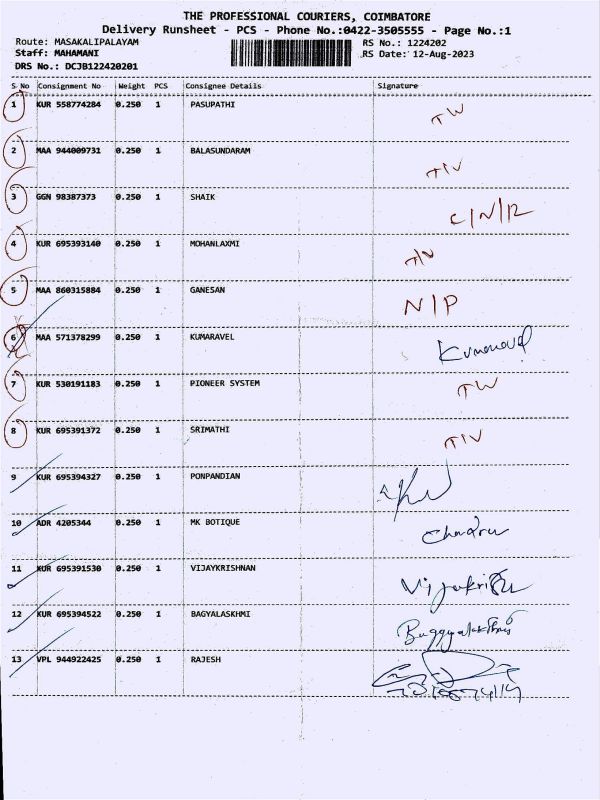 THE PROFESSIONAL COURIERS, COIMBATORE
Delivery Runsheet - PCS - Phone No.:0422-3505555 - Page No.:1
Route: MASAKALIPALAYAM RS No.: 1224202
Staff: MAHAMANI RS Date: 12-Aug-2023
DRS No.: DCJB122420201
S No Consignment No Weight PCS Consignee Details Signature
1 KUR 558774284 0.250 1 PASUPATHI
2 MAA 944009731 0.250 1 BALASUNDARAM
3 GGN 98387373 0.250 1 SHAIK C/N/R
4 KUR 695393140 0.250 1 MOHANLAXMI
5 MAA 860315884 0.250 1 GANESAN N/P
6 MAA 571378299 0.250 1 KUMARAVEL Kumaravel
7 KUR 530191183 0.250 1 PIONEER SYSTEM
8 KUR 695391372 0.250 1 SRIMATHI
9 KUR 695394327 0.250 1 PONPANDIAN
10 ADR 4205344 0.250 1 MK BOTIQUE Chandru
11 KUR 695391530 0.250 1 VIJAYKRISHNAN
12 KUR 695394522 0.250 1 BAGYALASKHMI
13 VPL 944922425 0.250 1 RAJESH